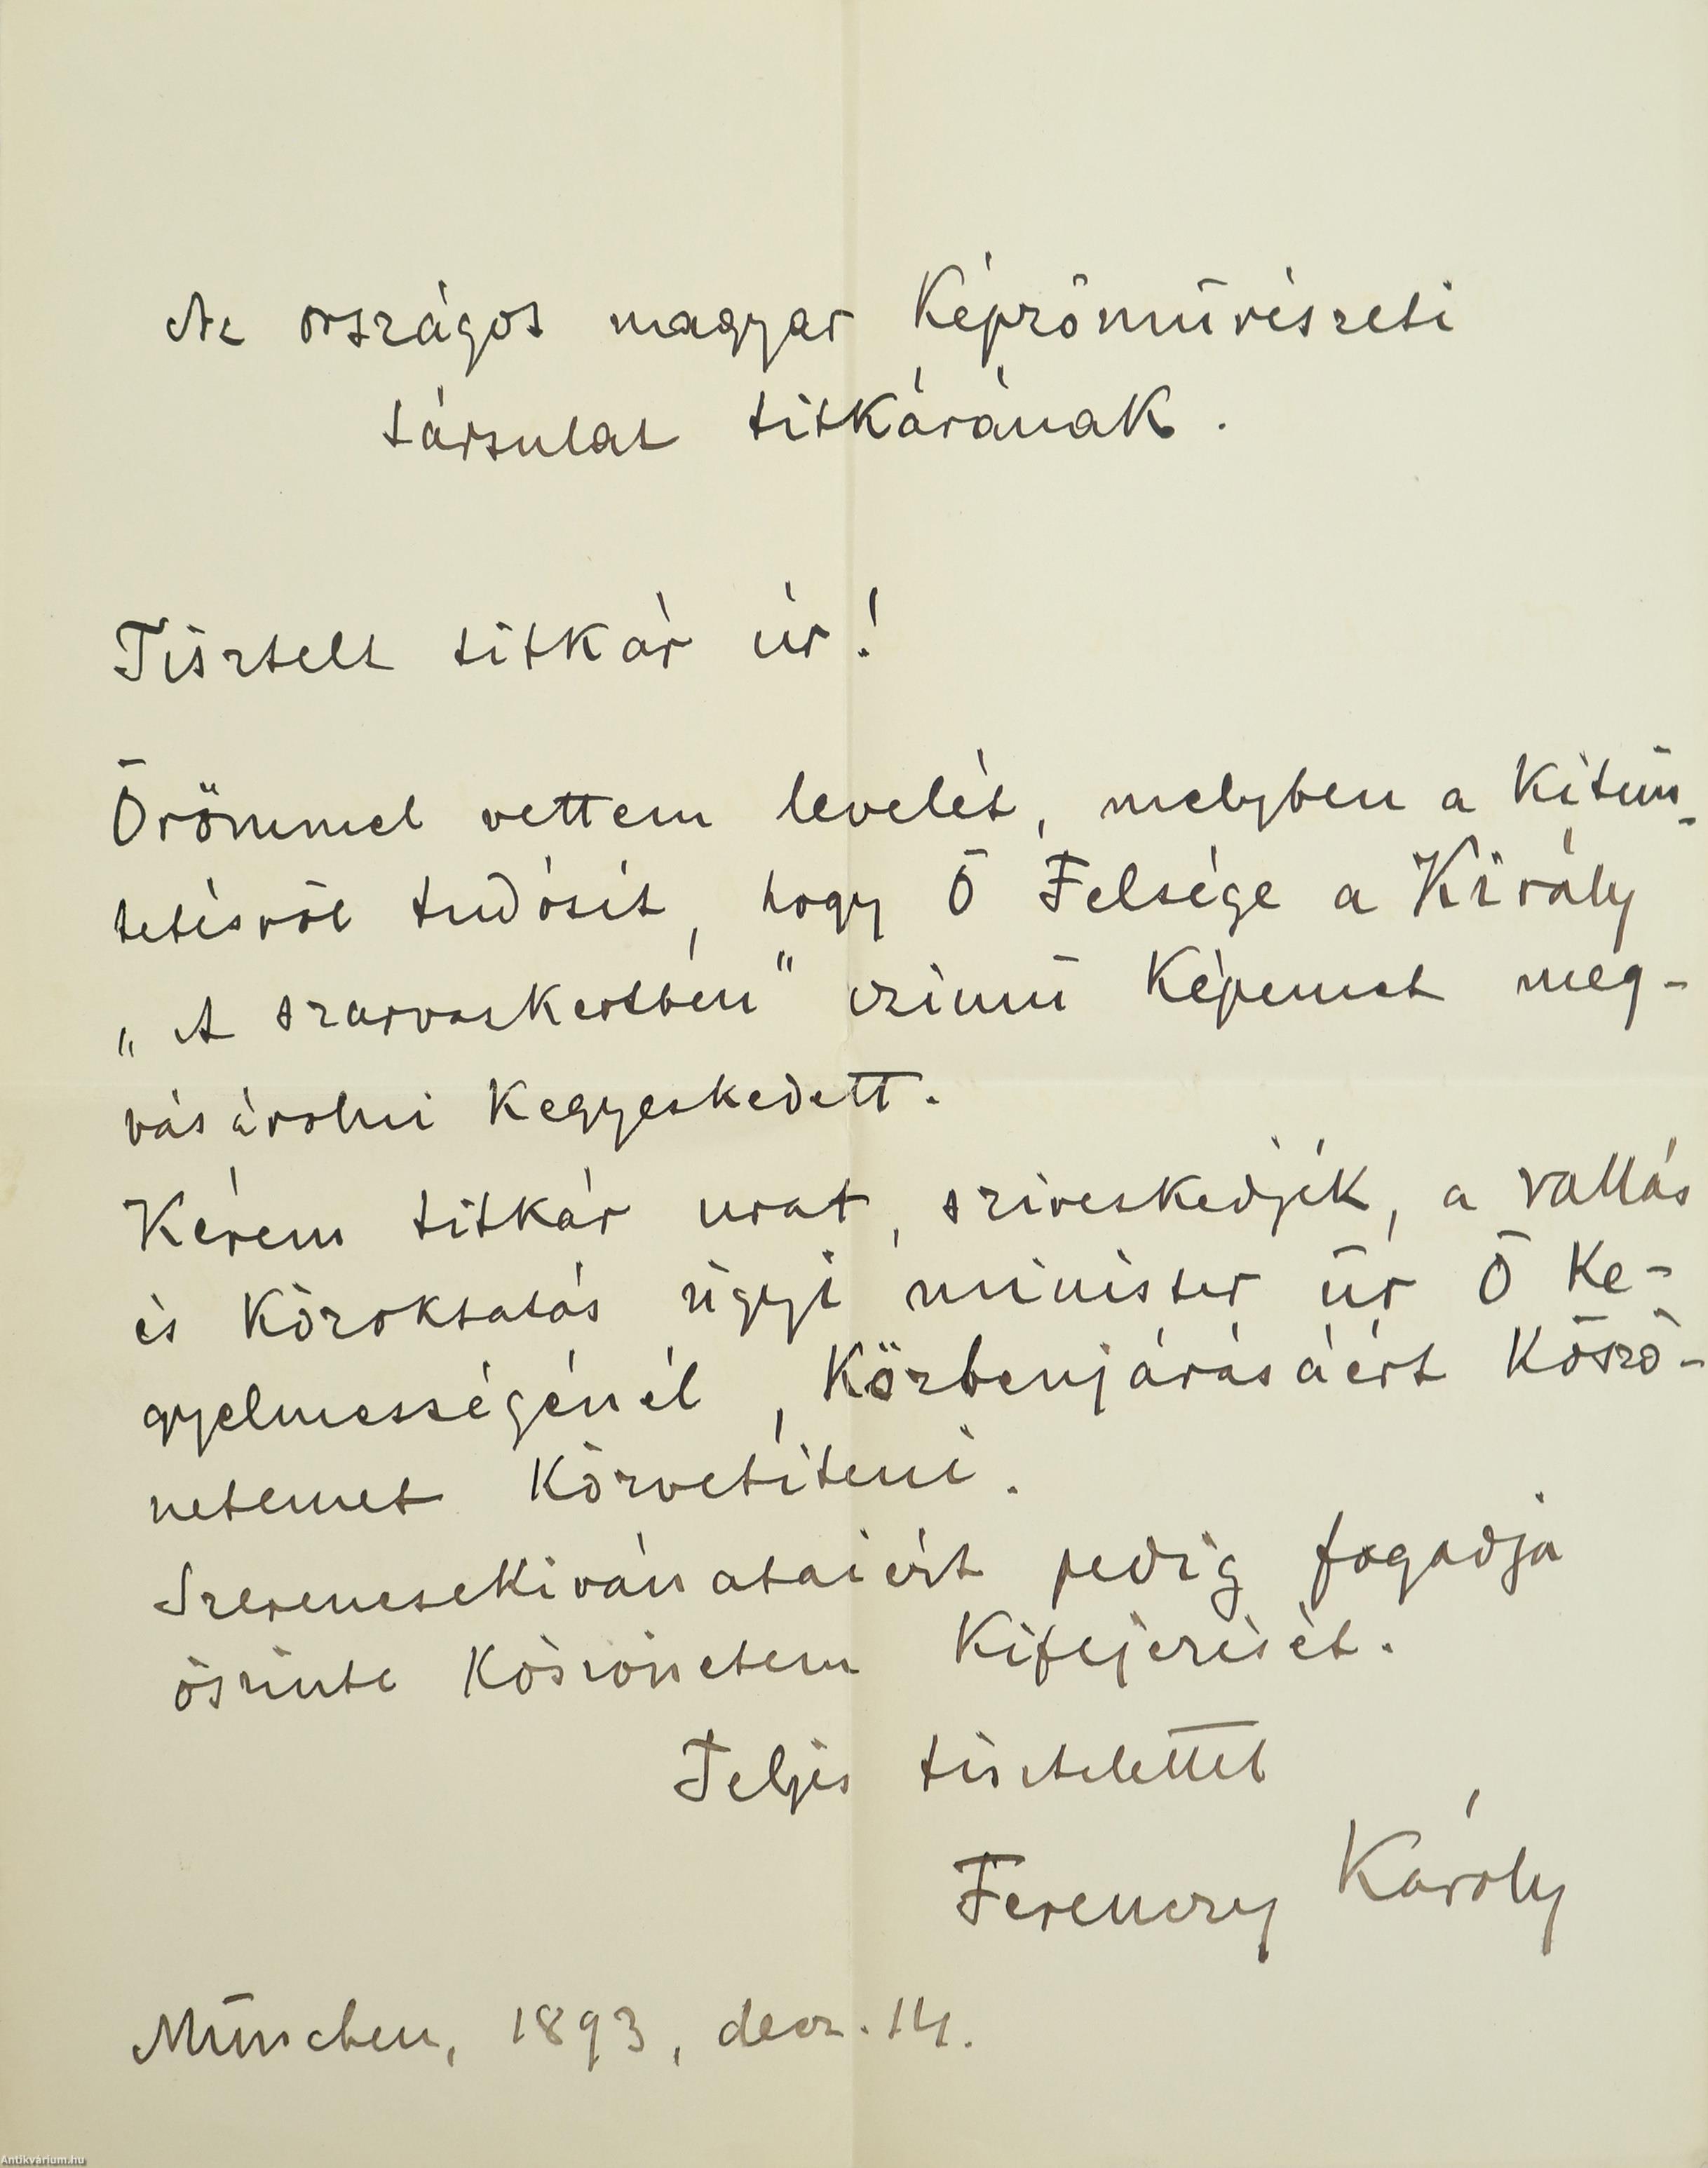 Az országos magyar Képzőművészeti
társulat titkárának.
Tisztelt titkár úr!
Örömmel vettem levelét, melyben a kitün-
tetésről tudósit, hogy Ő Felsége a Király
„A szarvaskertben" czimű képemet meg-
vásárolni kegyeskedett.
Kérem titkár urat, sziveskedjék, a vallás
és közoktatás ügyi minister úr Ő ke-
gyelmességénél, közbenjárásáért köszö-
netemet közvetíteni.
Szerencsekivánataiért pedig fogadja
őszinte köszönetem kifejezését.
Teljes tisztelettel
Ferenczy Károly
München, 1893, decz. 14.
Antikvárium.hu